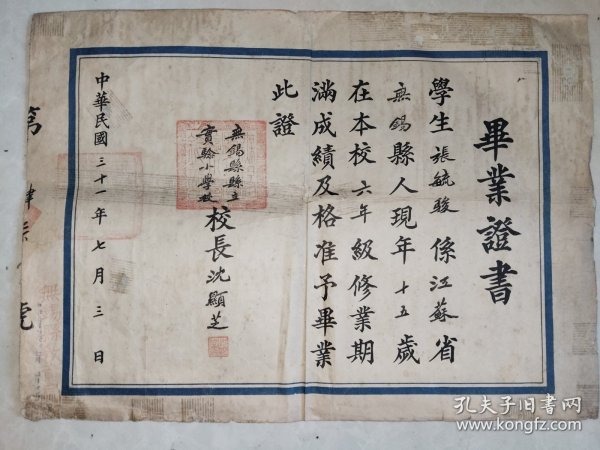 畢業證書
學生張毓駿係江蘇省
無錫縣人現年十五歲
在本校六年級修業期
滿成績及格准予畢業
此證
無錫縣縣立
實驗小學校
校長沈顯芝
中華民國三十一年七月三日
第
號
孔夫子旧书网
www.kongfz.com